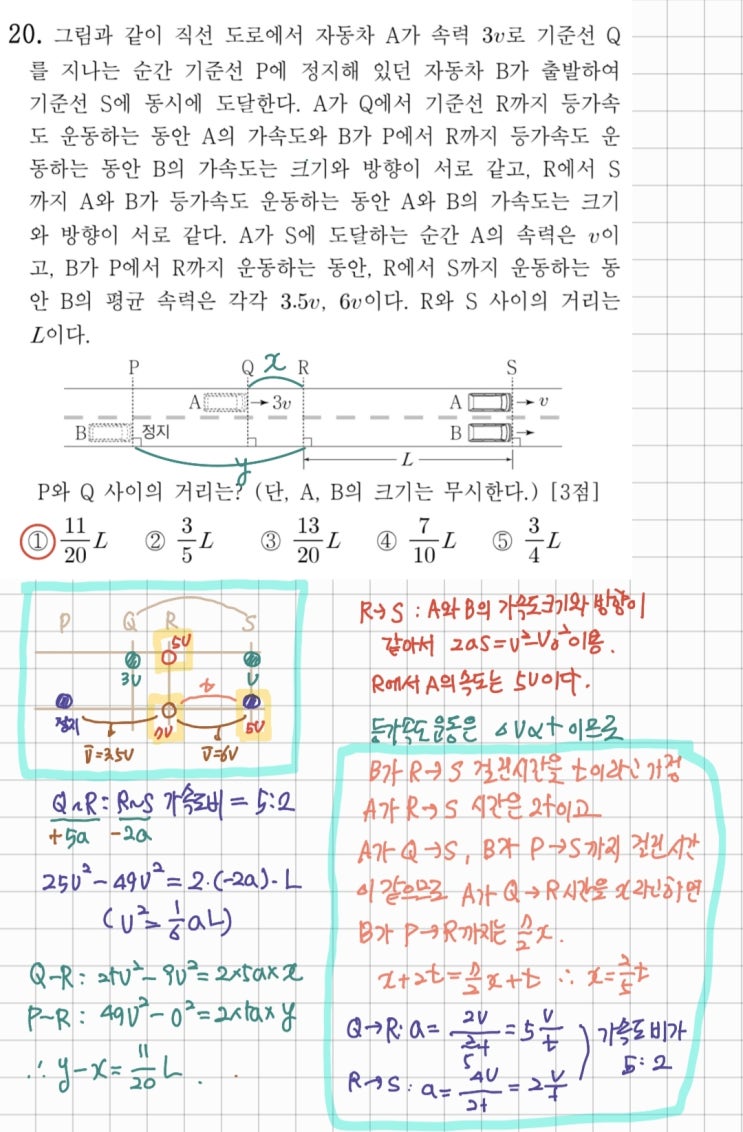 20. 그림과 같이 직선 도로에서 자동차 A가 속력 3v로 기준선 Q
를 지나는 순간 기준선 P에 정지해 있던 자동차 B가 출발하여
기준선 S에 동시에 도달한다. A가 Q에서 기준선 R까지 등가속
도 운동하는 동안 A의 가속도와 B가 P에서 R까지 등가속도 운
동하는 동안 B의 가속도는 크기와 방향이 서로 같고, R에서 S
까지 A와 B가 등가속도 운동하는 동안 A와 B의 가속도는 크기
와 방향이 서로 같다. A가 S에 도달하는 순간 A의 속력은 v이
고, B가 P에서 R까지 운동하는 동안, R에서 S까지 운동하는 동
안 B의 평균 속력은 각각 3.5v, 6v이다. R와 S 사이의 거리는
L이다.
P Q x R S
A 3v A v
B 정지 B
y L
P와 Q 사이의 거리는? (단, A, B의 크기는 무시한다.) [3점]
① 11/20 L ② 3/5 L ③ 13/20 L ④ 7/10 L ⑤ 3/4 L
P Q R S
5v
3v v
t
정지 7v 5v
v̄=3.5v v̄=6v
Q~R : R~S 가속도비 = 5:2
+5a -2a
25v²-49v²=2·(-2a)·L
(v²=1/6 aL)
Q-R : 25v²-9v²=2×5a×x
P~R : 49v²-0²=2×5a×y
∴ y-x=11/20 L.
R→S : A와 B의 가속도크기와 방향이
같아서 2as=v²-v₀²이용.
R에서 A의 속도는 5v이다.
등가속도 운동은 ΔV∝t 이므로
B가 R→S 걸린시간을 t이라고 가정
A가 R→S 시간은 2t이고
A가 Q→S, B가 P→S까지 걸린시간
이 같으므로 A가 Q→R시간을 x라고하면
B가 P→R까지는 7/2 x.
x+2t=7/2 x+t ∴ x=2/5 t
Q→R: a= 2v/(2/5 t) =5 v/t
R→S: a= 4v/2t =2 v/t
가속도비가
5:2